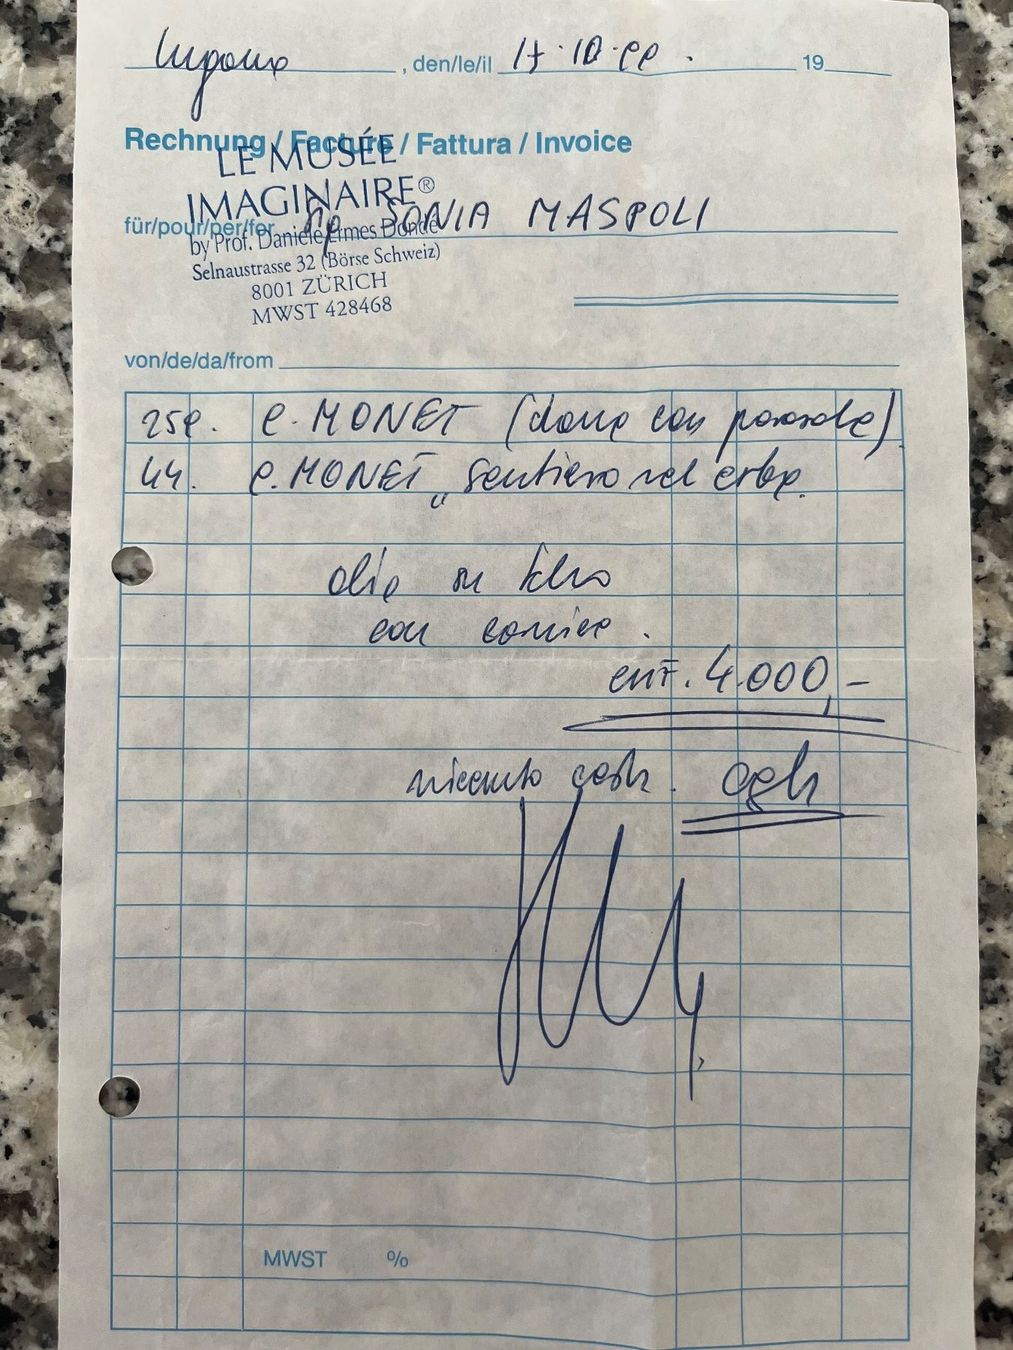 Lugano , den/le/il 17·10·99. 19
Rechnung / Facture / Fattura / Invoice
LE MUSÉE
IMAGINAIRE®
für/pour/per/fer SONIA MASPOLI
by Prof. Daniele Ermes Donde
Selnaustrasse 32 (Börse Schweiz)
8001 ZÜRICH
MWST 428468
von/de/da/from
259. C. MONET (donna con parasole)
44. C. MONET „Sentiero nel erba.
olio su tela
con cornice.
CHF. 4.000,-
ricevuto cash.
MWST %